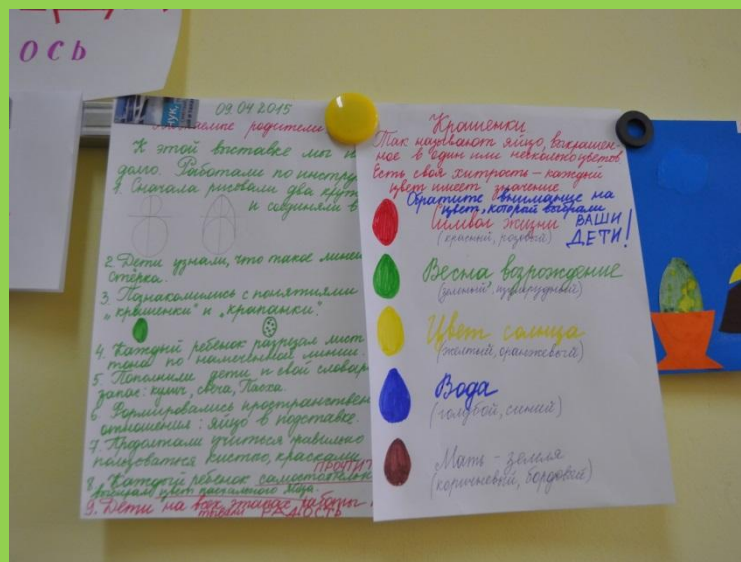 ОСЬ
09.04.2015
родители
К этой выставке мы
долго. Работали по
1. Сначала рисовали два
и соединяли
2. Дети узнали, что такое
стёрка.
3. Познакомились с понятиями
"крашенки" и "крапанки".
4. Каждый ребенок разрезал лист
по намеченной линии.
5. Пополнили дети и свой
запас: кулич, свеча, Пасха.
6. Формировались
отношения: яйцо в подставке.
7. Продолжали учиться правильно
пользоваться кистью, красками
8. Каждый ребенок
выбирал цвет пасхального яйца.
9. Дети на всех этапах работы
РАДОСТЬ
Крашенки
Так называют яйцо, выкрашен-
ное в один или несколько цветов
Есть своя хитрость - каждый
цвет имеет значение.
Обратите внимание на
цвет, который выбрали
ВАШИ
ДЕТИ!
Символ жизни
(красный, розовый)
Весна возрождение
(зелёный, изумрудный)
Цвет солнца
(желтый, оранжевый)
Вода
(голубой, синий)
Мать - земля
(коричневый, бордовый)